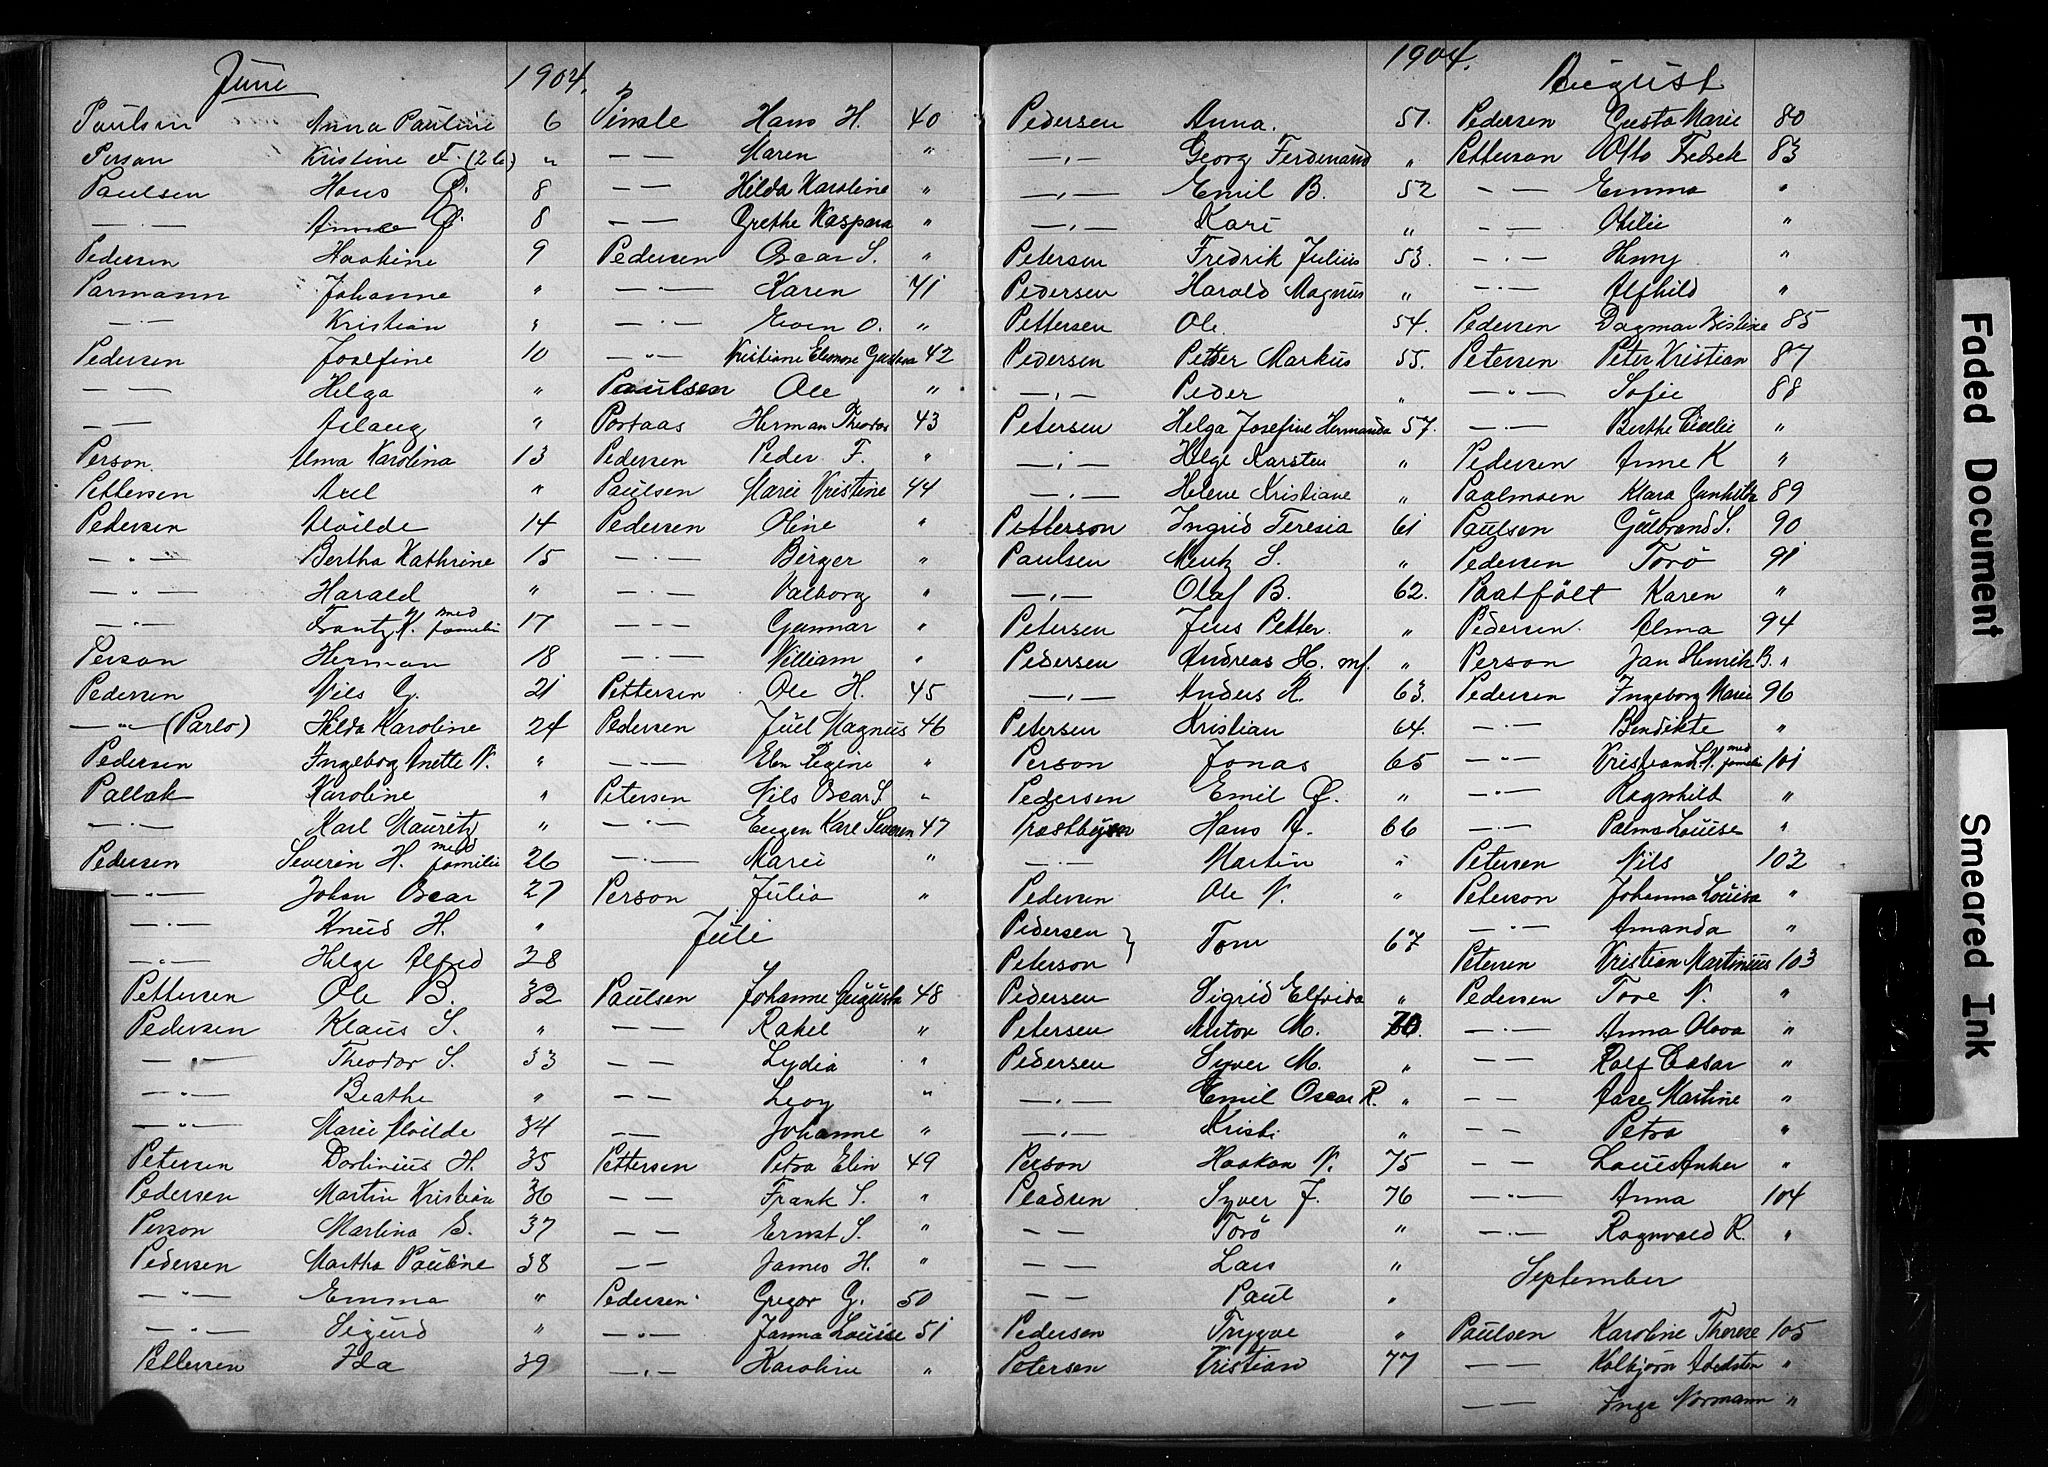 June 1904.
Paulsen Anna Pauline 6
Person Kristine F. (26) "
Paulsen Hans P. 8
— . — Anne P. 8
Pedersen Haakine 9
Parmann Johanne "
— . — Kristian "
Pedersen Josefine 10
— — Helga "
— — Aslaug "
Person. Alma Karolina 13
Pettersen Axel "
Pedersen Alvilde 14
— " — Bertha Kathrine 15
— " — Harald "
— " — Frantz K. med familie 17
Person Herman 18
Pedersen Nils G. 21
— " — (Parlo) Hilda Karoline 24
Pedersen Ingeborg Anette N. "
Pallak Karoline "
— . — Karl Mauritz "
Pedersen Severin H. med familie 26
— " — Johan Oscar 27
— . — Knud H. "
— " — Helge Alfred 28
Pettersen Ole B. 32
Pedersen Klaus S. "
— " — Theodor S. 33
— " — Beathe "
— " — Marie Alvilde 34
Petersen Dorlinius H. 35
Pedersen Martin Kristian 36
Person Martina S. 37
Pedersen Martha Pauline 38
— " — Emma "
— " — Sigurd "
Pettersen Ida 39
Pinsle Hans H. 40
— — Maren "
— — Hilda Karoline "
— — Grethe Kaspara "
Pedersen Oscar S. "
— . — Karen 41
— . — Even O. "
— " — Kristiane Elenore Gustava 42
Paulsen Ole "
Portaas Herman Theodor 43
Pedersen Peder F. "
Paulsen Marie Kristine 44
Pedersen Oline "
— . — Birger "
— . — Valborg "
— . — Gunnar "
— . — William "
Pettersen Ole H. 45
Pedersen Juel Magnus 46
— . — Elen Regine "
Petersen Nils Oscar S. "
— . — Eugen Karl Severin 47
— . — Marie "
Person Julia "
Juli
Paulsen Johanne Augusta 48
— — Rakel "
— — Lydia "
— — Levy "
— — Johanne "
Pettersen Petra Elin 49
— — Frank S. "
— — Ernst S. "
— — James H. "
Pedersen Gregor G. 50
— " — Janna Louise 51
— " — Karoline "
1904.
Pedersen Anna. 51.
— " — Georg Ferdinand "
— " — Emil B. 52
— " — Kari "
Petersen Fredrik Julius 53.
Pedersen Harald Magnus "
Pettersen Ole 54.
Pedersen Petter Markus 55.
— " — Peder "
Petersen Helga Josefine Hermanda 57.
— " — Helge Karsten "
— " — Helene Kristiane "
Petterson Ingrid Teresia 61
Paulsen S. "
— " — Olaf B. 62.
Petersen Jens Petter. "
Pedersen Andreas H. mf. "
— " — Anders K. 63.
Petersen Kristian 64.
Person Jonas 65
Pedersen Emil O. "
Præstbyen Hans A. 66
— . — Martin "
Pedersen Ole N. "
Pedersen
Peterson } Tom 67
Pedersen Sigrid Elfrida "
Petersen M. 70.
Pedersen Syver M. "
— " — Emil Oscar R. "
— " — Kristi "
Person Haakon N. 75
Pladsen Syver J. 76
— — Torø "
— — Lars "
— — Paul "
Pedersen Trygve "
Petersen Kristian 77
August
Pedersen Gusta Marie 80
Petterson Otto Fredrik 83
— — Emma "
— — Otilie "
— . — Hanny "
— . — Alfhild "
Pedersen Dagmar Kristine 85
Petersen Peter Kristian 87
— " — Sofie 88
— . — Berthe Cicelie "
Pedersen Anne K "
Paalmoen Klara Gunhilda 89
Paulsen Gulbrand S. 90
Pedersen Torø 91
Paatfølt Karen "
Pedersen. Alma 94
Person Jan Henrik B. "
Pedersen Ingeborg Marie 96
— . — Bendikte "
— " — Kristian L. N. med familie 101
— " — Ragnhild "
— . — Palma Louise "
Petersen Nils 102
Peterson Johanna Louisa "
— . — Amanda "
Petersen Kristian Martinius 103
Pedersen Tore N. "
— . — Anna Olava "
— — Ralf Casar "
— — Aase Martine "
— — Petra "
— — Louis Anker "
— " — Anna 104
— . — Ragnvald R. "
September
Paulsen Karoline Therese 105
— — Kolbjørn Adelsten "
— — Inga Normann "
Faded Document
Smeared Ink